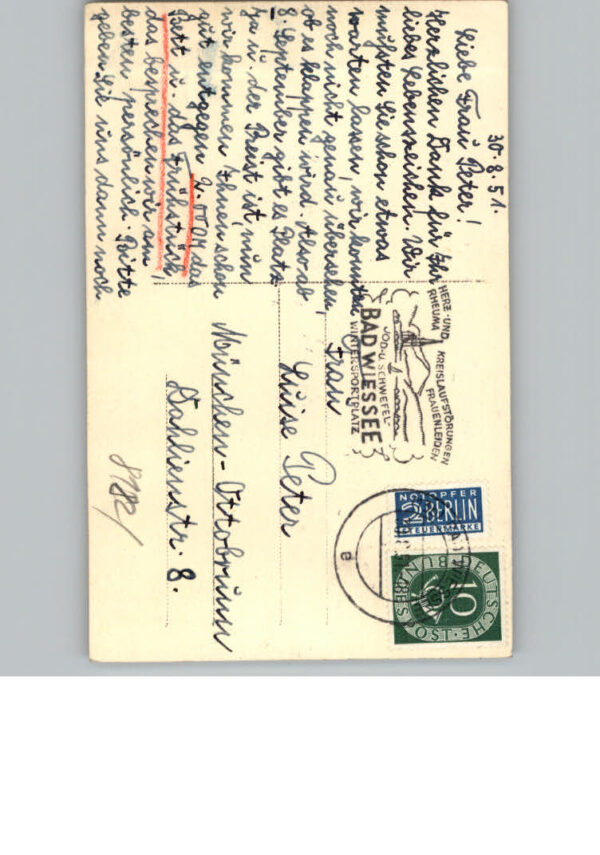 30.8.51.
Liebe Frau Peter!
Herzlichen Dank für Ihr
liebes Lebenszeichen. Wir
mußten Sie schon etwas
warten lassen, wir konnten
noch nicht genau übersehen,
ob es klappen wird. Also ab
8. September gibt es Platz
für u. der Preis ist, nun
wir kommen Ihnen schon
gut entgegen DM das
Bett u. das Frühstück,
das besprechen wir am
besten persönlich. Bitte
geben Sie uns dann noch
Frau
Luise Peter
München-Ottobrunn
Dahlienstr. 8.
8182/
HERZ- UND KREISLAUFSTÖRUNGEN
RHEUMA FRAUENLEIDEN
JOD- U. SCHWEFEL-
BAD WIESSEE
WINTERSPORTPLATZ
NOTOPFER
2 BERLIN
STEUERMARKE
10
DEUTSCHE BUNDESPOST
e